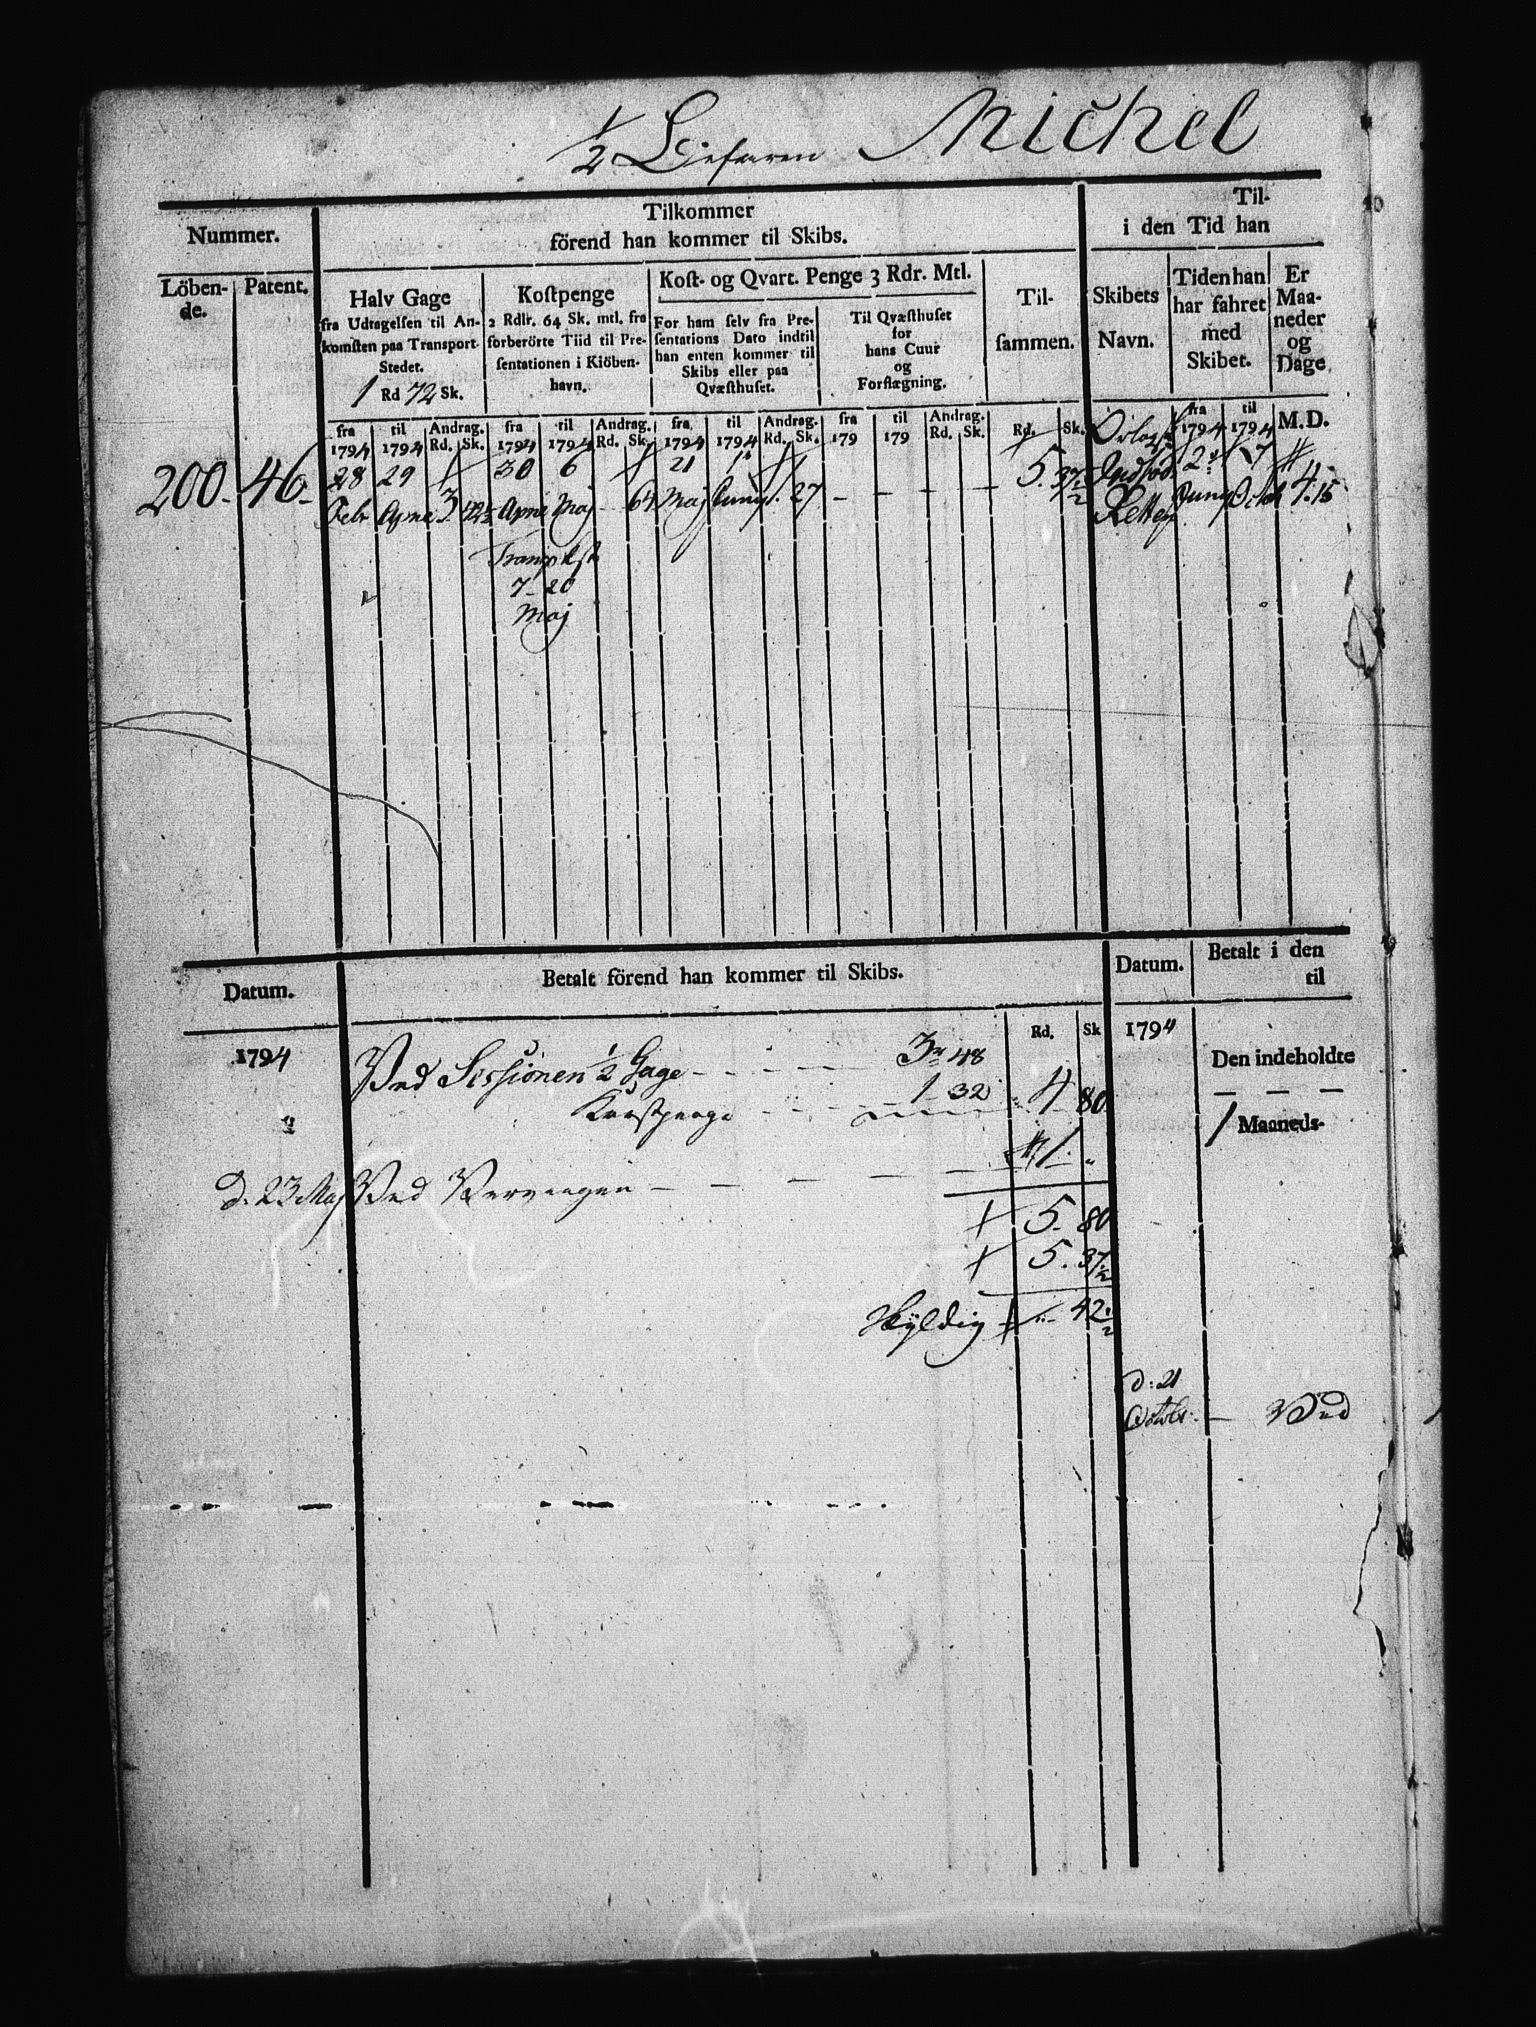 1/2 Befaren Michel
Nummer.
Tilkommer
förend han kommer til Skibs.
Til-
i den Tid han
Löben-
de.
Patent.
Halv Gage
fra Udtagelsen til An-
komsten paa Transport-
Stedet.
1 Rd 72 Sk.
Kostpenge
2 Rdlr. 64 Sk. mtl. fra
forberörte Tiid til Pre-
sentationen i Kiöben-
havn.
Kost- og Qvart. Penge 3 Rdr. Mtl.
For ham selv fra Pre-
sentations Dato indtil
han enten kommer til
Skibs eller paa
Qvæsthuset.
Til Qvæsthuset
for
hans Cuur
og
Forflægning.
Til-
sammen.
Skibets
Navn.
Tiden han
har fahret
med
Skibet.
Er
Maa-
neder
og
Dage
fra 1794 til 1794 Andrag. Rd. Sk.
fra 1794 til 1794 Andrag. Rd. Sk.
fra 1794 til 1794 Andrag. Rd. Sk.
fra 179 til 179 Andrag. Rd. Sk.
Rd. Sk.
fra 1794 til 1794 M. D.
200 - 46 -
28 Febr 29 April 3 42 1/2
30 April 6 Maj 64
21 Maj 1 Juny 1. 27 - - - -
5. 37 1/2
Orlogs
Indfød
Retten
2 Juny 17 Octob 4. 15
Transp
7 - 20
Maj
Datum.
Betalt förend han kommer til Skibs.
Datum.
Betalt i den
til
Rd. Sk
1794
1794
Ved Sessionen 1/2 Gage - - - - 3 48
Kostpenge - - - 1 32 4 80
1 "
d. 23 Maj Ved Vervingen - - - -
5 - 80
5. 37 1/2
Skyldig " 42 1/2
Den indeholdte
— — —
1 Maaneds-
d: 21
Octobr. — Ved